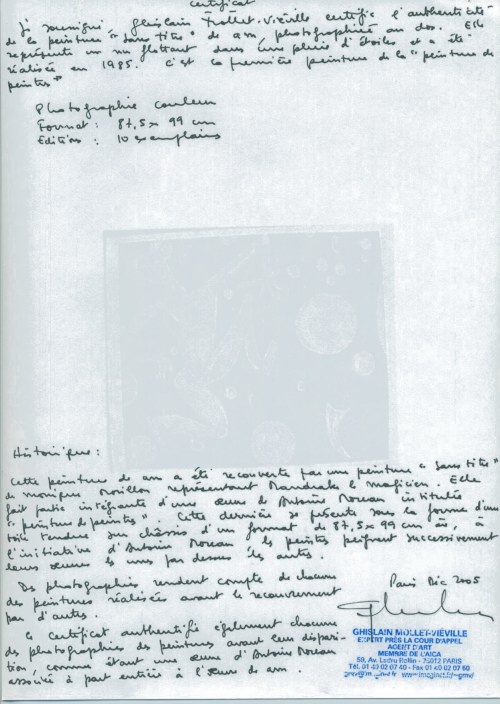 certificat
Je soussigné, Ghislain Mollet-Viéville certifie l'authenticité
de la peinture "sans titre" de am, photographiée au dos. Elle
représente un nu flottant dans une pluie d'étoiles et a été
réalisée en 1985. C'est la première peinture de la "peinture de
peintres"
Photographie couleur
Format : 87,5 x 99 cm
Editions : 10 exemplaires
Historique :
Cette peinture de am a été recouverte par une peinture "sans titre"
de monique représentant Mandrake le magicien. Elle
fait partie intégrante d'une œuvre de Antoine Moreau intitulée
"peinture de peintres". Cette dernière se présente sous la forme d'une
toile tendue sur châssis d'un format de 87,5 x 99 cm où, à
l'initiative d'Antoine Moreau les peintres peignent successivement
leurs œuvres les unes par dessus les autres.
Des photographies rendent compte de chacune
des peintures réalisées avant le recouvrement
par d'autres.
Ce certificat authentifie également chacune
des photographies des peintures avant leur dispari-
tion, comme étant une œuvre d'Antoine Moreau
associée à part entière à l'œuvre de am.
Paris Déc 2005
GHISLAIN MOLLET-VIÉVILLE
EXPERT PRÈS LA COUR D'APPEL
AGENT D'ART
MEMBRE DE L'AICA
50, Av. Ledru Rollin - 75012 PARIS
Tél. 01 43 02 07 40 - Fax 01 40 02 07 80